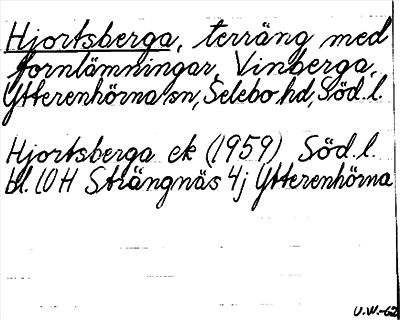 Hjortsberga, terräng med
fornlämningar, Vinberga,
Ytterenhörna sn, Selebo hd, Söd. l.
Hjortsberga ek (1959) Söd. l.
bl. 10H Strängnäs 4j Ytterenhörna
U.W.-62